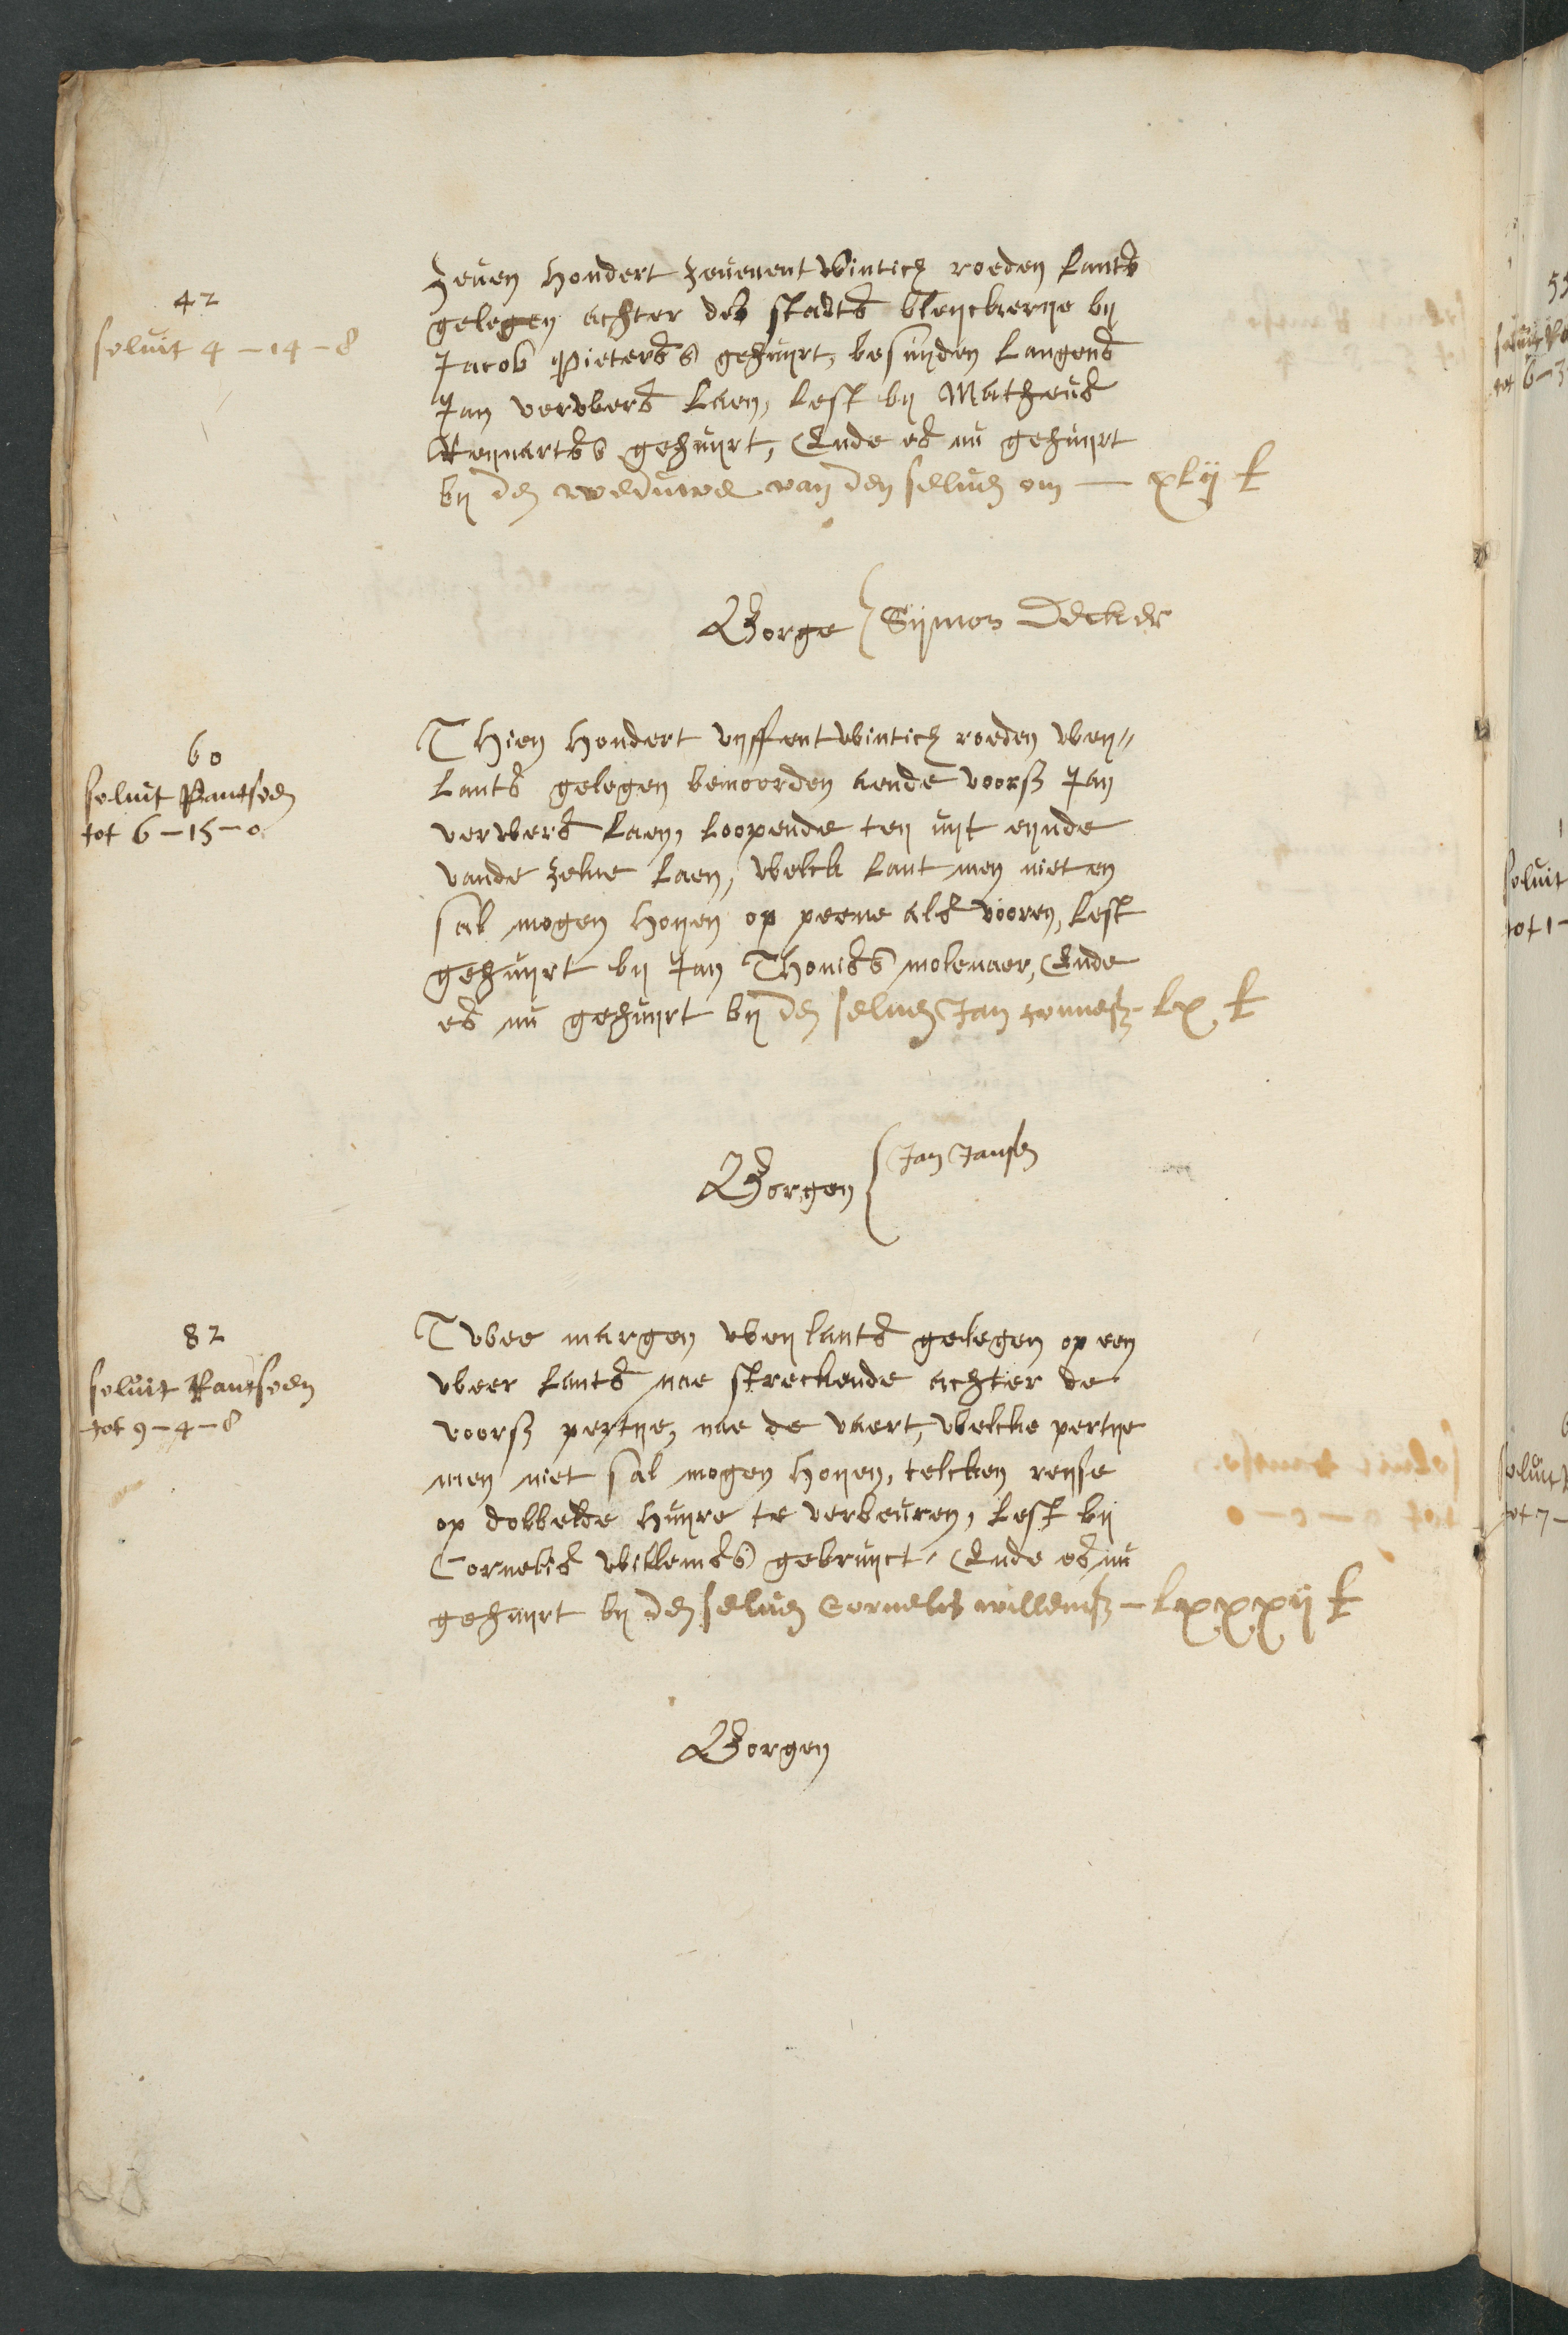 42
solvit 4 - 14 - 8
Zeuen hondert zeuenentwintich roeden lants
gelegen achter des stadts bleyckerye by
Jacob Pieterss gehuyrt, besuyden langens
Jan ververs laen, lest by Matheus
Reynartss gehuyrt, Ende es nu gehuyrt
by de weduwe van den seluen om — xlij £
Borge { Sijmon Decker
60
solvit Rantsoen
tot 6 - 15 - 0
Thien hondert vyffentwintich roeden wey=
lants gelegen benoorden aende voorsz Jan
ververs laen, loopende ten uyt eynde
vande zelue laen, welck lant men niet en
sal mogen hoyen op peene als vooren, lest
gehuyrt by Jan Thoniss molenaer, Ende
es nu gehuyrt by den seluen Jan tonnesz - lx £
Borgen { Jan Jansen
82
solvit Rantsoen
tot 9 - 4 - 8
Twee margen weylants gelegen op een
weer lants nae streckende achter de
voorsz pertye, nae de vaert, welcke pertye
men niet sal mogen hoyen, telcken reyse
op dobbelde huyre te verbeuren, lest by
Cornelis Willemss gebruyct, Ende es nu
gehuyrt by den seluen Cornelis willemsz - lxxxij £
Borgen